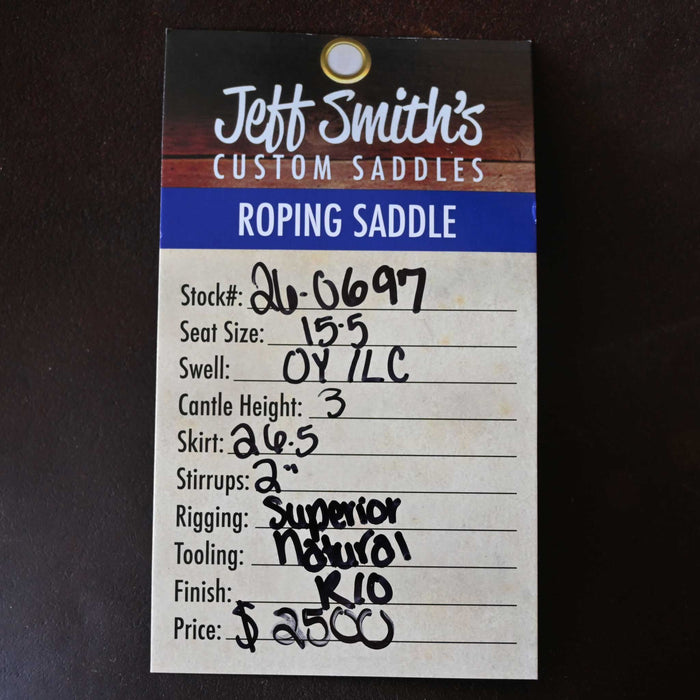 Jeff Smith's
CUSTOM SADDLES
ROPING SADDLE
Stock#: 26-0697
Seat Size: 15.5
Swell: OY 1LC
Cantle Height: 3
Skirt: 26.5
Stirrups: 2"
Rigging: Superior
Tooling: Natural
Finish: R10
Price: $2500